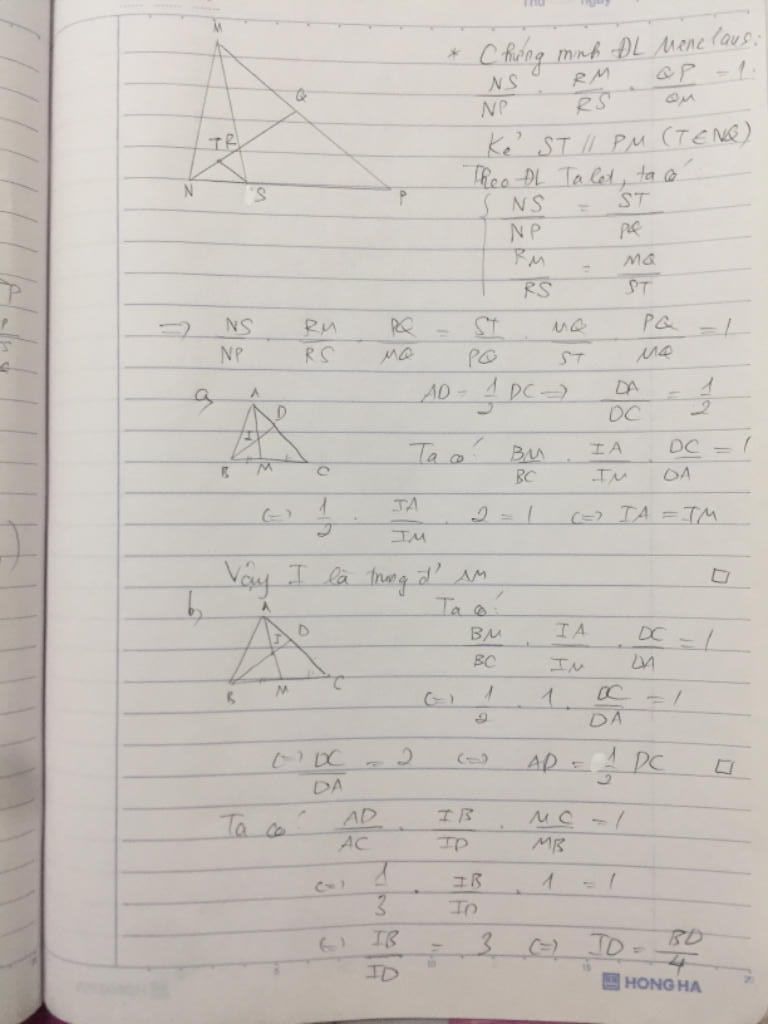 * Chứng minh ĐL Menelaus:
NS/NP . RM/RS . QP/QM = 1.
M
Q
T R
N S P
Kẻ ST // PM (T ∈ NQ)
Theo ĐL Ta let, ta có
{ NS/NP = ST/PQ
RM/RS = MQ/ST
=> NS/NP . RM/RS . PQ/MQ = ST/PQ . MQ/ST . PQ/MQ = 1
a, AD = 1/2 DC => DA/DC = 1/2
A
D
I
B M C
Ta có: BM/BC . IA/IM . DC/DA = 1
<=> 1/2 . IA/IM . 2 = 1 <=> IA = IM
Vậy I là trung đ' AM □
b, Ta có:
A
D
I
B M C
BM/BC . IA/IM . DC/DA = 1
<=> 1/2 . 1 . DC/DA = 1
<=> DC/DA = 2 <=> AD = 1/2 DC □
Ta có: AD/AC . IB/ID . MC/MB = 1
<=> 1/3 . IB/ID . 1 = 1
<=> IB/ID = 3 <=> ID = BD/4
5 10 15 20
HONG HA